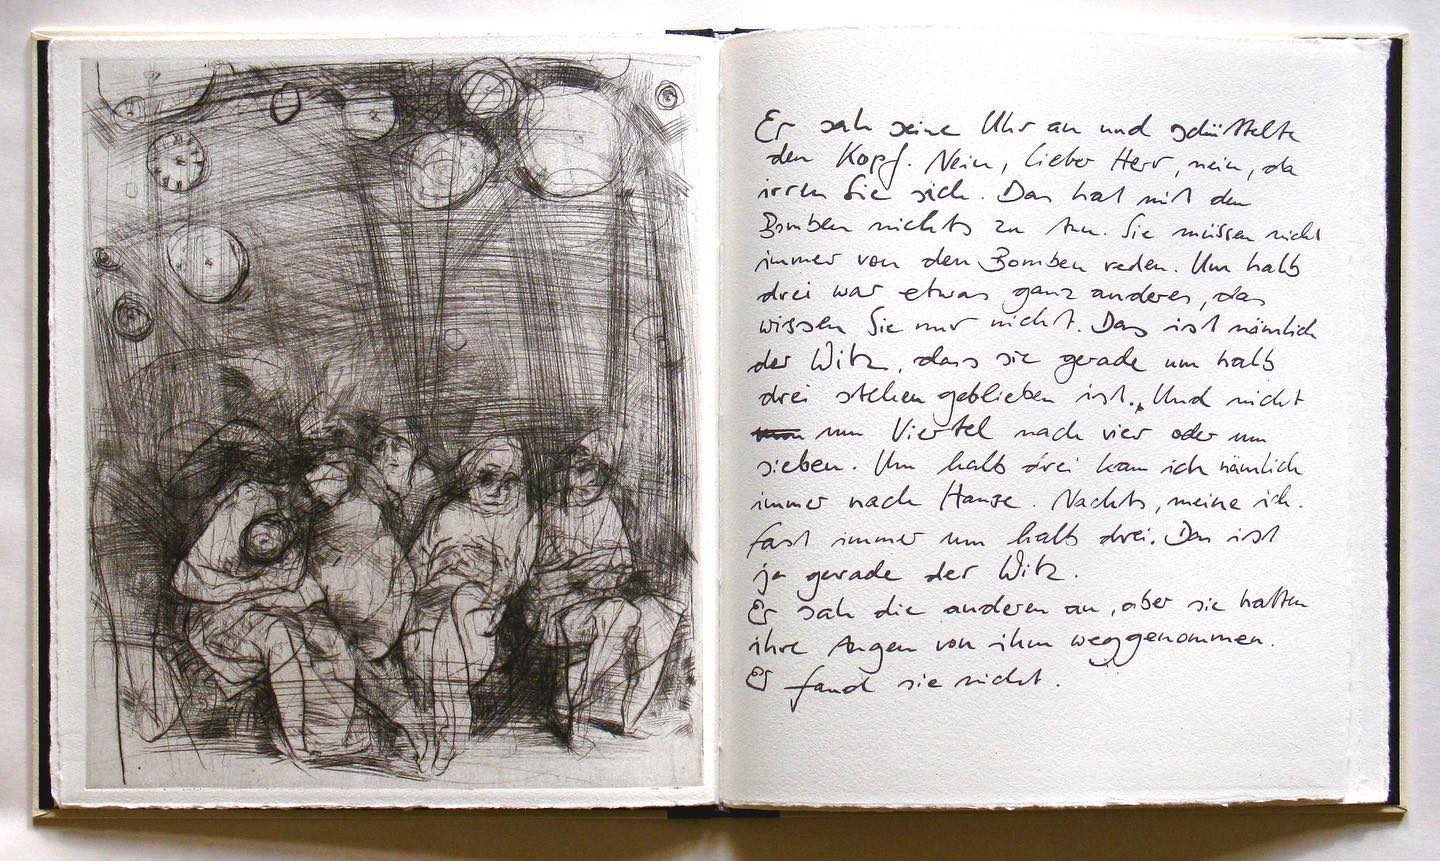 Er sah seine Uhr an und schüttelte
den Kopf. Nein, lieber Herr, nein, da
irren Sie sich. Das hat mit den
Bomben nichts zu tun. Sie müssen nicht
immer von den Bomben reden. Um halb
drei war etwas ganz anderes, das
wissen Sie nur nicht. Das ist nämlich
der Witz, dass sie gerade um halb
drei stehen geblieben ist. Und nicht
um Viertel nach vier oder um
sieben. Um halb drei kam ich nämlich
immer nach Hause. Nachts, meine ich.
fast immer um halb drei. Das ist
ja gerade der Witz.
Er sah die anderen an, aber sie hatten
ihre Augen von ihm weggenommen.
Er fand sie nicht.